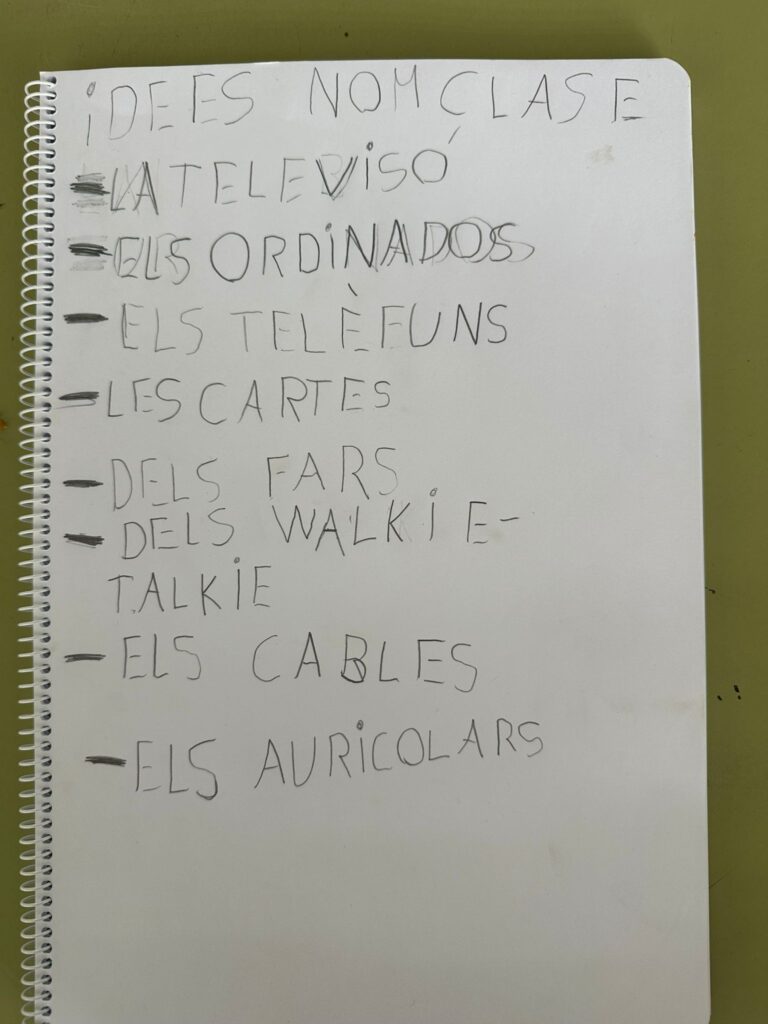 iDEES NOM CLASE
- LA TELEViSÓ
- ELS ORDiNADOS
- ELS TELÈFUNS
- LES CARTES
- DELS FARS
- DELS WALKiE-
TALKiE
- ELS CABLES
- ELS AURiCOLARS